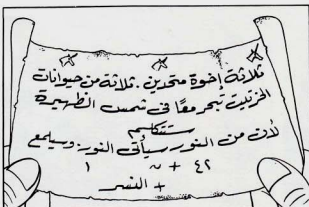 ثلاثة إخوة متحدين . ثلاثة من حيوانات
الخرتيت تبحر معًا فى شمس الظهيرة
ستتكلم
لأن من النور سيأتى النور: وسيلمع
+ النسر